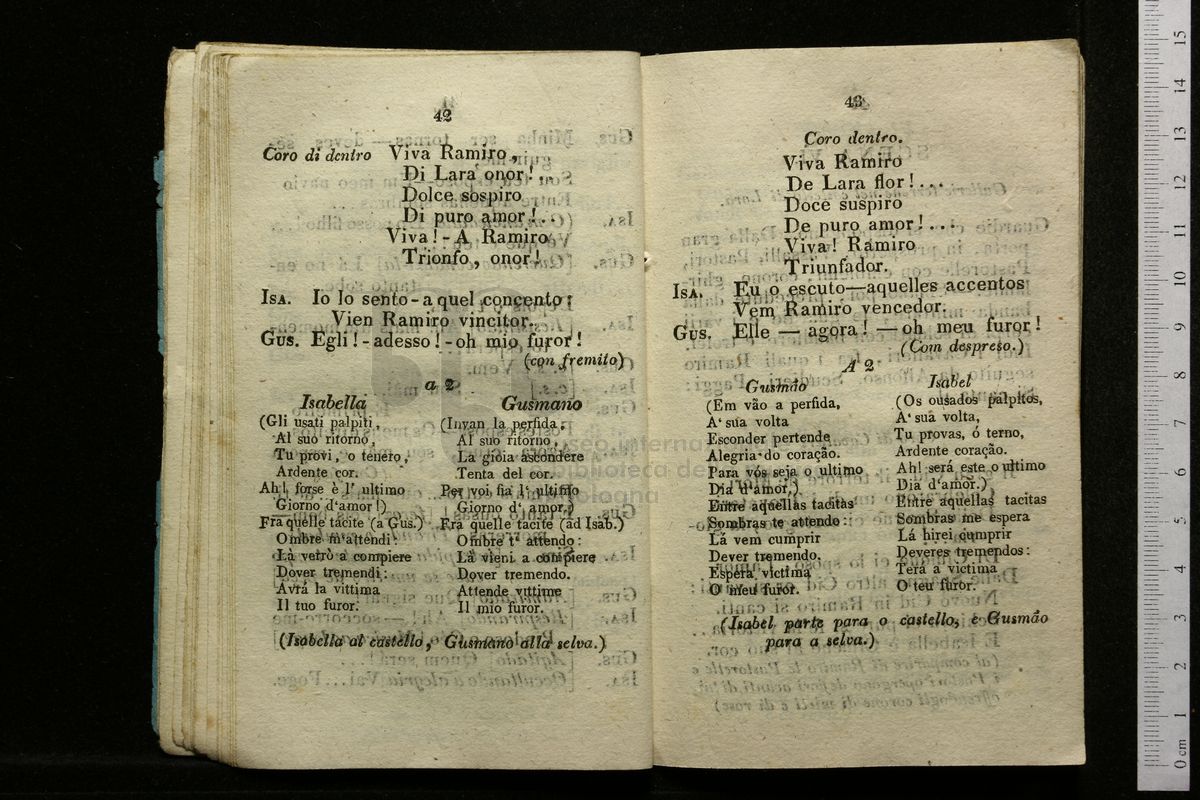 42
Coro di dentro Viva Ramiro,
Di Lara onor!...
Dolce sospiro
Di puro amor!..
Viva! - A Ramiro
Trionfo, onor!
ISA. Io lo sento - a quel concento:
Vien Ramiro vincitor.
GUS. Egli! - adesso! - oh mio furor!
(con fremito)
a 2
Isabella
(Gli usati palpiti
Al suo ritorno,
Tu provi, o tenero,
Ardente cor.
Ah! forse è l' ultimo
Giorno d'amor!)
Fra quelle tacite (a Gus.)
Ombre m'attendi:
Là verrò a compiere
Dover tremendi:
Avrà la vittima
Il tuo furor.
Gusmano
(Invan la perfida,
Al suo ritorno,
La gioia ascondere
Tenta del cor.
Per voi fia l' ultimo
Giorno d' amor.)
Fra quelle tacite (ad Isab.)
Ombre t' attendo:
Là vieni a compiere
Dover tremendo.
Attende vittime
Il mio furor.
(Isabella al castello, Gusmano alla selva.)
43
Coro dentro.
Viva Ramiro
De Lara flor!...
Doce suspiro
De puro amor!...
Viva! Ramiro
Triunfador.
ISA. Eu o escuto—aquelles accentos
Vem Ramiro vencedor.
GUS. Elle — agora! — oh meu furor!
(Com despreso.)
A 2
Gusmão
(Em vão a perfida,
A' sua volta
Esconder pertende
Alegria do coração.
Para vós seja o ultimo
Dia d'amor.)
Entre aquellas tacitas
Sombras te attendo:
Lá vem cumprir
Dever tremendo.
Espera victima
O meu furor.
Isabel
(Os ousados palpitos,
A' sua volta,
Tu provas, ó terno,
Ardente coração.
Ah! será este o ultimo
Dia d'amor.)
Entre aquellas tacitas
Sombras me espera
Lá hirei cumprir
Deveres tremendos:
Terá a victima
O teu furor.
(Isabel parte para o castello, e Gusmão
para a selva.)
0 cm 1 2 3 4 5 6 7 8 9 10 11 12 13 14 15